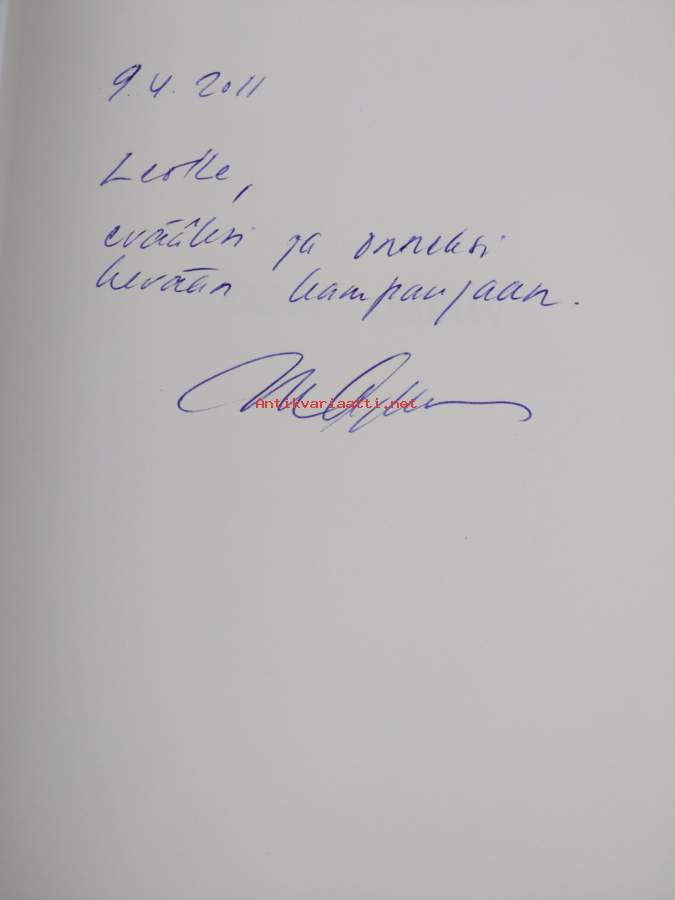 9.4.2011
Leolle,
evääksi ja onneksi
kevään kampanjaan.
Antikvariaatti.net